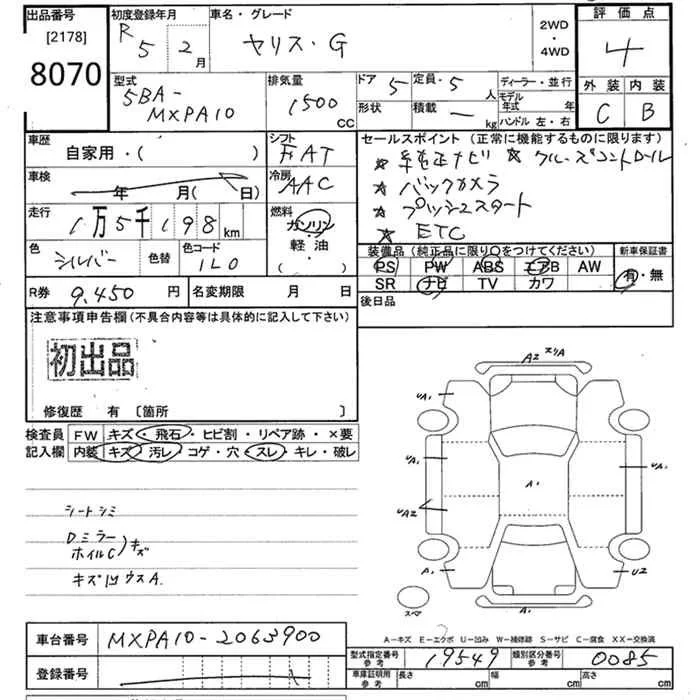 出品番号 [2178] 8070
初度登録年月 R5 2月
車名・グレード ヤリス・G
2WD・4WD
評価点 4
外装 C 内装 B
型式 5BA-MXPA10
排気量 1500 CC
ドア 5 定員 5 人
形状 積載 — kg
ディーラー・並行
モデル年式 年
ハンドル 左・右
車歴 自家用・( )
シフト FAT
車検 年 月( 日)
冷房 AAC
走行 1万5千198 km
燃料 ガソリン・軽油( ・ )
色 シルバー 色替 色コード 1L0
セールスポイント (正常に機能するものに限ります)
★ 純正ナビ ★ クルーズコントロール
★ バックカメラ
★ プッシュスタート
★ ETC
装備品 (純正品に限り○をつけてください) 新車保証書
PS PW ABS エアB AW 有・無
SR ナビ TV カワ
R券 9,450 円 名変期限 月 日
後日品
注意事項申告欄 (不具合内容等は具体的に記入して下さい)
初出品
修復歴 有 〔箇所 〕
検査員 FW キズ・飛石・ヒビ割・リペア跡・×要
記入欄 内装 キズ・汚レ・コゲ・穴・スレ・キレ・破レ
シートシミ
Dミラー
ホイルC)キズ
キズ凹ウスA.
A2
UA1
A1
UA1
UA2
A1
A1
U2
スマ
A-キズ E-エクボ U-凹み W-補修跡 S-サビ C-腐食 XX-交換済
車台番号 MXPA10-2063900
型式指定番号 参考 19549 類別区分番号 参考 0085
登録番号
車庫証明用 参考 長さ cm 幅 cm 高さ cm